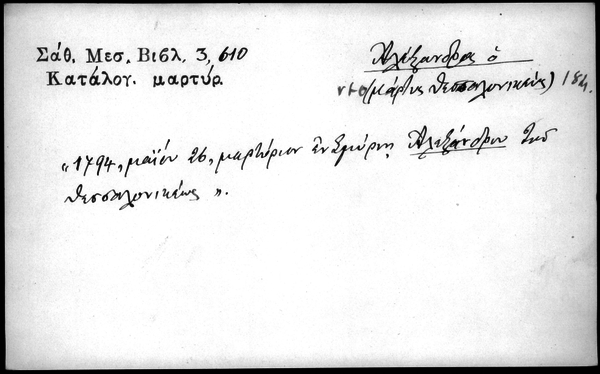 Σάθ. Μεσ. Βιβλ. 3, 610
Κατάλογ. μαρτύρ.
Ἀλέξανδρος ὁ
(μάρτυς Θεσσαλονικεύς)
"1794, μαΐου 26, μαρτύριον ἐν Σμύρνῃ Ἀλεξάνδρου τοῦ
Θεσσαλονικέως".